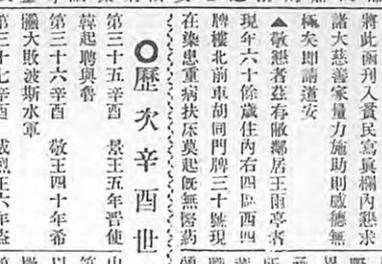 將此函刊入貧民寫真欄內懇求
諸大慈善家量力施助則感德無
極矣即請道安
▲敬懇者茲有敝鄰居王雨亭者
現年六十餘歲住內右四區西四
牌樓北前車胡同門牌三十號現
在染患重病扶床莫起旣無醫藥
◎歷次辛酉世
第三十五辛酉 景王五年晋使
韓起聘與魯
第三十六辛酉 敬王四十年希
臘大敗波斯水軍
第三十七辛酉 威烈王六年